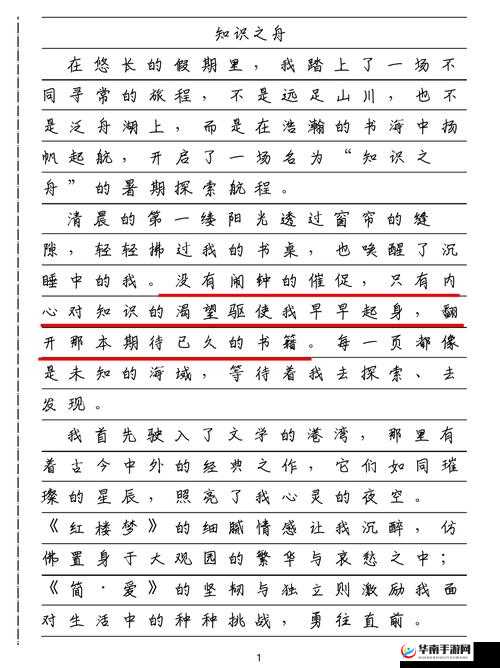 知识之舟
在悠长的假期里，我踏上了一场不
同寻常的旅程，不是远足山川，也不
是泛舟湖上，而是在浩瀚的书海中扬
帆起航，开启了一场名为“知识之
舟”的暑期探索航程。
清晨的第一缕阳光透过窗帘的缝
隙，轻轻拂过我的书桌，也唤醒了沉
睡中的我。没有闹钟的催促，只有内
心对知识的渴望驱使我早早起身，翻
开那本期待已久的书籍。每一页都像
是未知的海域，等待着我去探索、去
发现。
我首先驶入了文学的港湾，那里有
着古今中外的经典之作，它们如同璀
璨的星辰，照亮了我心灵的夜空。
《红楼梦》的细腻情感让我沉醉，仿
佛置身于大观园的繁华与哀愁之中；
《简·爱》的坚韧与独立则激励我面
对生活中的种种挑战，勇往直前。
1
华南手游网